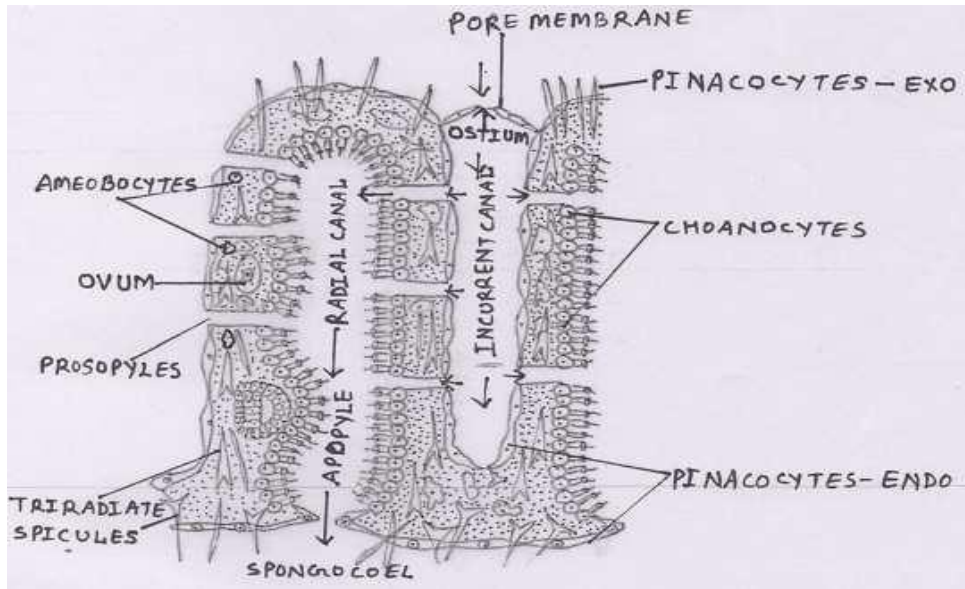 PORE MEMBRANE
PINACOCYTES - EXO
OSTIUM
AMEOBOCYTES
CHOANOCYTES
RADIAL CANAL
INCURRENT CANAL
OVUM
PROSOPYLES
APOPYLE
PINACOCYTES - ENDO
TRIRADIATE
SPICULES
SPONGOCOEL